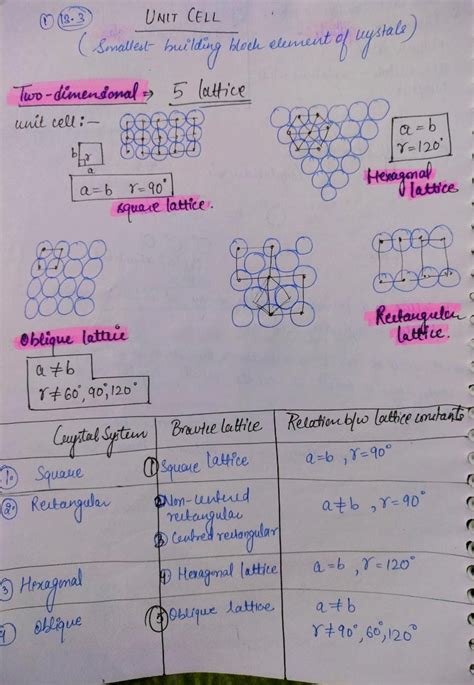 ① 12.3
UNIT CELL
(Smallest building block element of crystals)
Two-dimensional ⇒ 5 lattice
unit cell:-
b
r
a
a=b r=90°
square lattice.
a=b
r=120°
Hexagonal
lattice
Oblique lattice
a≠b
r≠60°, 90°, 120°
Rectangular
lattice.
Crystal System Bravice lattice Relation b/w lattice constants
① Square ① Square lattice a=b, r=90°
② Rectangular ② Non-centered
rectangular
③ Centred rectangular
a≠b, r=90°
③ Hexagonal ④ Hexagonal lattice a=b, r=120°
④ Oblique ⑤ Oblique lattice a≠b
r≠90°, 60°, 120°